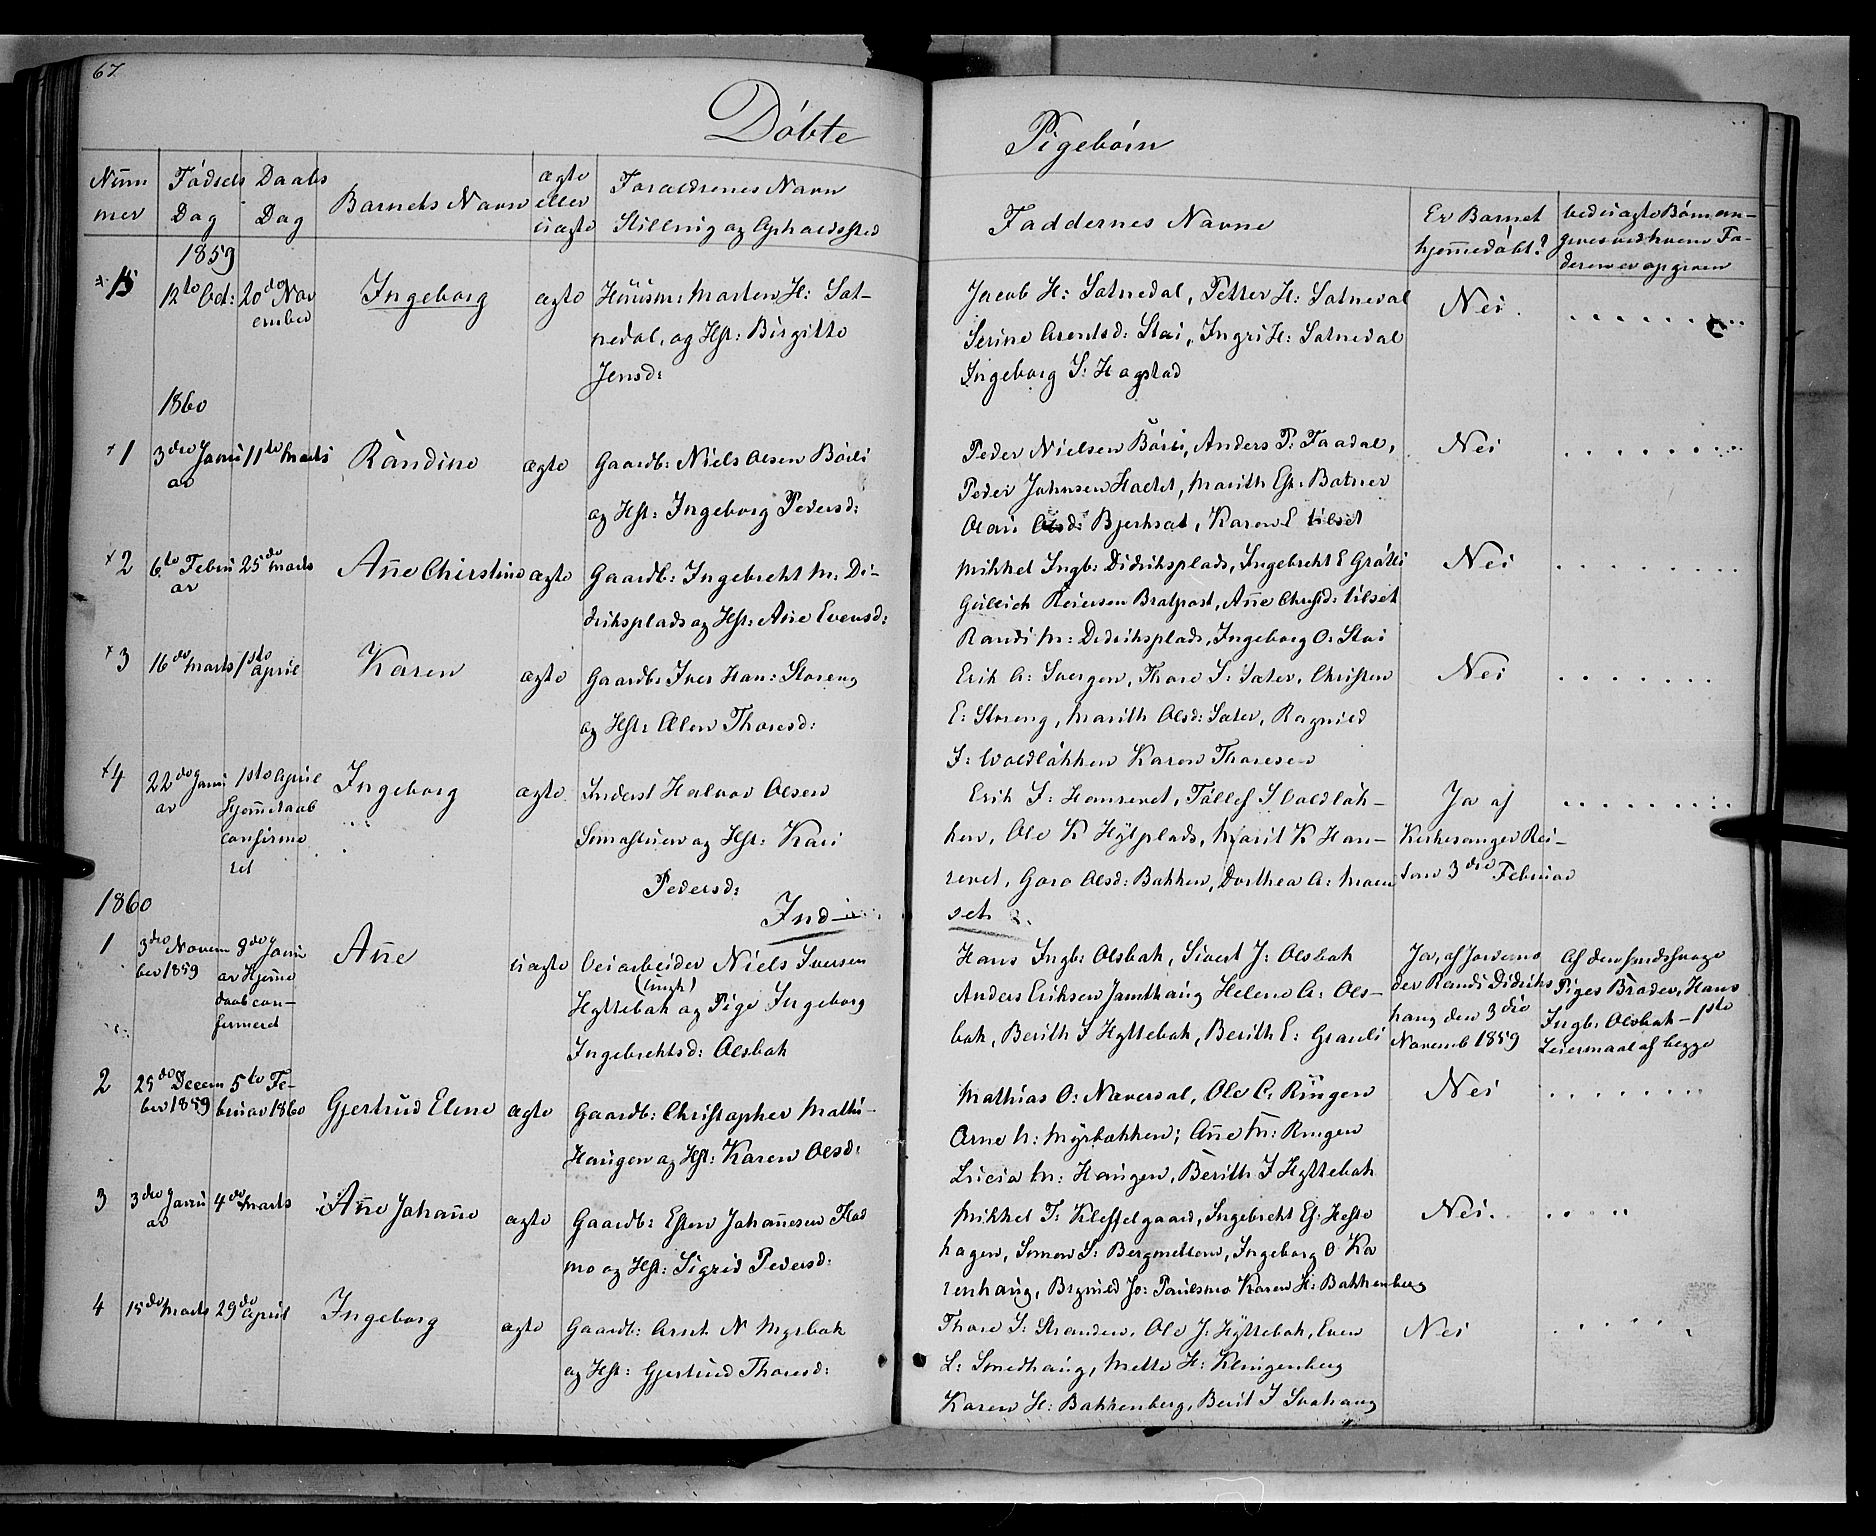 67
Döbte Pigebörn
Num
mer
Födsels
Dag
Daabs
Dag
Barnets Navn
ægte
eller
uægte
Forældrenes Navn
Stilling og Opholdssted
Faddernes Navne
Er Barnet
hjemmedöbt?
1859
15
12te Oct:
20de Nov
ember
Ingeborg
ægte
Huusm: Morten H: Sat-
nedal, og Hst: Birgitte
Jensd:
Jacob H: Satnedal, Petter H: Satnedal
Serine Arentsd: Stai, Ingri H: Satnedal
Ingeborg S: Hagstad
Nei.
1860
1
3die Janu
ar
11te Marts
Randine
ægte
Gaardb: Niels Olsen Börli
og Hst: Ingeborg Pedersd:
Peder Nielsen Börli, Anders P: Faadal,
Peder Johnsen Hactet, Marith Est: Batner
Olsd: Bjerksæt, Karen E tilset
Nei
2
6te Febru
ar
25de Marts
Ane Christine
ægte
Gaardb: Ingebreht M: Di-
driksplads og Hst: Ane Evensd:
Mikkel Ingb: Didriksplads, Ingebreht E Grötli
Reiersen Bratpost, Ane Christd: tilset
Randi M: Didriksplads, Ingeborg O: Stai
Nei
3
16de Marts
1ste
April
Karen
ægte
Gaardb: Iver Han: Storeng
og Hst: Olen Thoresd:
Erik A: Svergen, Thore S: Sæter, Christen
E: Storeng, Marith Olsd: Sæter, Ragnild
S: Voldlökken Karen Thoresen
Nei
4
22de Janu
ar
1ste April
Hjemmedaab
confirme
ret
Ingeborg
ægte
Inderst Halvor Olsen
Simastuen og Hst: Kari
Pedersd:
Erik S: Hanrevet, Tollef S Voldlök-
ken, Ole K Hylplads, Marit K Han-
revet, Goro Olsd: Bakken, Dorthea A: Moen
set
Ja af
Kirkesanger Rei-
tan 3die Februar
1860
Ind
1
3die Novem
ber 1859
9de Janu
ar Hjemme
daab con-
fermeret
Ane
uægte
Veiarbeider Niels Iversen
Hyttebak (Ungk) og Pige Ingeborg
Ingebrehtsd: Olsbak
Hans Ingb: Olsbak, Sivert J: Olsbak
Anders Eriksen Jamthaug Helene A: Ols-
bak, Berith S Hyttebak, Berith E: Grauli
Ja, af Jordemo
der Randi Didriks
haug den 3die
Novemb 1859
Af den besvangrede
Piges Broder, Hans
Ingb: Olsbak - 1ste
Leiermaal af begge
2
25de Decem
ber 1859
5te Fe-
bruar 1860
Gjertrud Elene
ægte
Gaardb: Christopher Mathi-
Haugen og Hst: Karen Olsd:
Mathias O: Næverdal, Ole C: Ringen
Arne N: Myrbækken; Ane M: Ringen
Lucia M: Haugen, Berith I Hyttebak
Nei
3
3die Janu
ar
4de Marts
Ane Johane
ægte
Gaardb: Esten Johannesen Flad
mo og Hst: Sigrid Pedersd:
Mikkel T: Kleffelgaard, Ingebreht Es: Heste
hagen, Simen S: Bergmelsen, Ingeborg O Ka
renhaug, Brynild Jo: Paulsmo Karen H: Bakkenberg
Nei.
4
15de Marts
29de April
Ingeborg
ægte
Gaardb: Arnt N Myrbak
og Hst: Gjertrud Thoresd:
Thore S: Stranden, Ole J: Hyttebak, Even
L: Smedhaug, Mette H: Klingenberg
Karen H: Bakkenberg, Berit I Svahaug
Nei